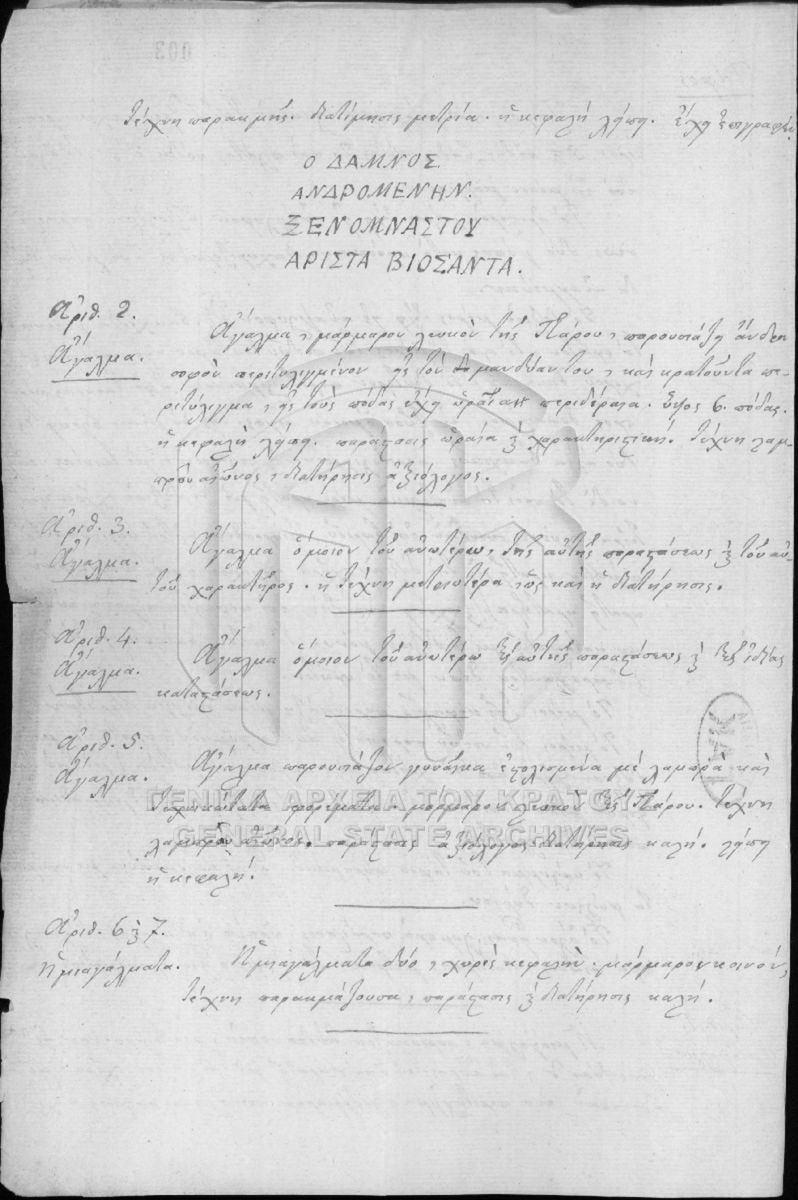 003
τέχνη παρακμῆς. διατίμησις μετρία. ἡ κεφαλὴ λείπει. ἔχει ἐπιγραφὴν.
Ο ΔΑΜΝΟΣ.
ΑΝΔΡΟΜΕΝΗΝ.
ΞΕΝΟΜΝΑΣΤΟΥ
ΑΡΙΣΤΑ ΒΙΟΣΑΝΤΑ.
Ἀριθ. 2.
Ἄγαλμα.
Ἄγαλμα, μάρμαρον λευκὸν τῆς Πάρου, παρουσιάζει ἄνδρα
σοφὸν περιτυλιγμένον εἰς τὸν μανδύαν του, καὶ κρατοῦντα πε-
ριτύλιγμα, εἰς τοὺς πόδας ἔχει ὡραῖα περιδέραια. ὕψος 6. πόδας.
ἡ κεφαλὴ λείπει. παράστασις ὡραία & χαρακτηριστική. τέχνη λαμ-
προῦ αἰῶνος, διατήρησις ἀξιόλογος.
Ἀριθ. 3.
Ἄγαλμα.
Ἄγαλμα ὅμοιον τοῦ ἀνωτέρω, τῆς αὐτῆς παραστάσεως & τοῦ αὐ-
τοῦ χαρακτῆρος. ἡ τέχνη μετριωτέρα, ὡς καὶ ἡ διατήρησις.
Ἀριθ. 4.
Ἄγαλμα.
Ἄγαλμα ὅμοιον τοῦ ἀνωτέρω τῆς αὐτῆς παραστάσεως & τῆς ἰδίας
καταστάσεως.
Ἀριθ. 5.
Ἄγαλμα.
Ἄγαλμα παρουσιάζον γυναῖκα στολισμένα μὲ λαμπρὰ καὶ
φορέματα. μάρμαρον λευκὸν τῆς Πάρου. τέχνη
λαμπροῦ αἰῶνος. παράστασις ἀξιόλογος διατήρησις καλή. λείπει
ἡ κεφαλή.
Ἀριθ. 6 & 7.
Ἡμιαγάλματα.
Ἡμιαγάλματα δύο, χωρὶς κεφαλήν. μάρμαρον κοινόν,
τέχνη παρακμάζουσα, παράστασις & διατήρησις καλή.
ΓΕΝΙΚΑ ΑΡΧΕΙΑ ΤΟΥ ΚΡΑΤΟΥΣ
GENERAL STATE ARCHIVES